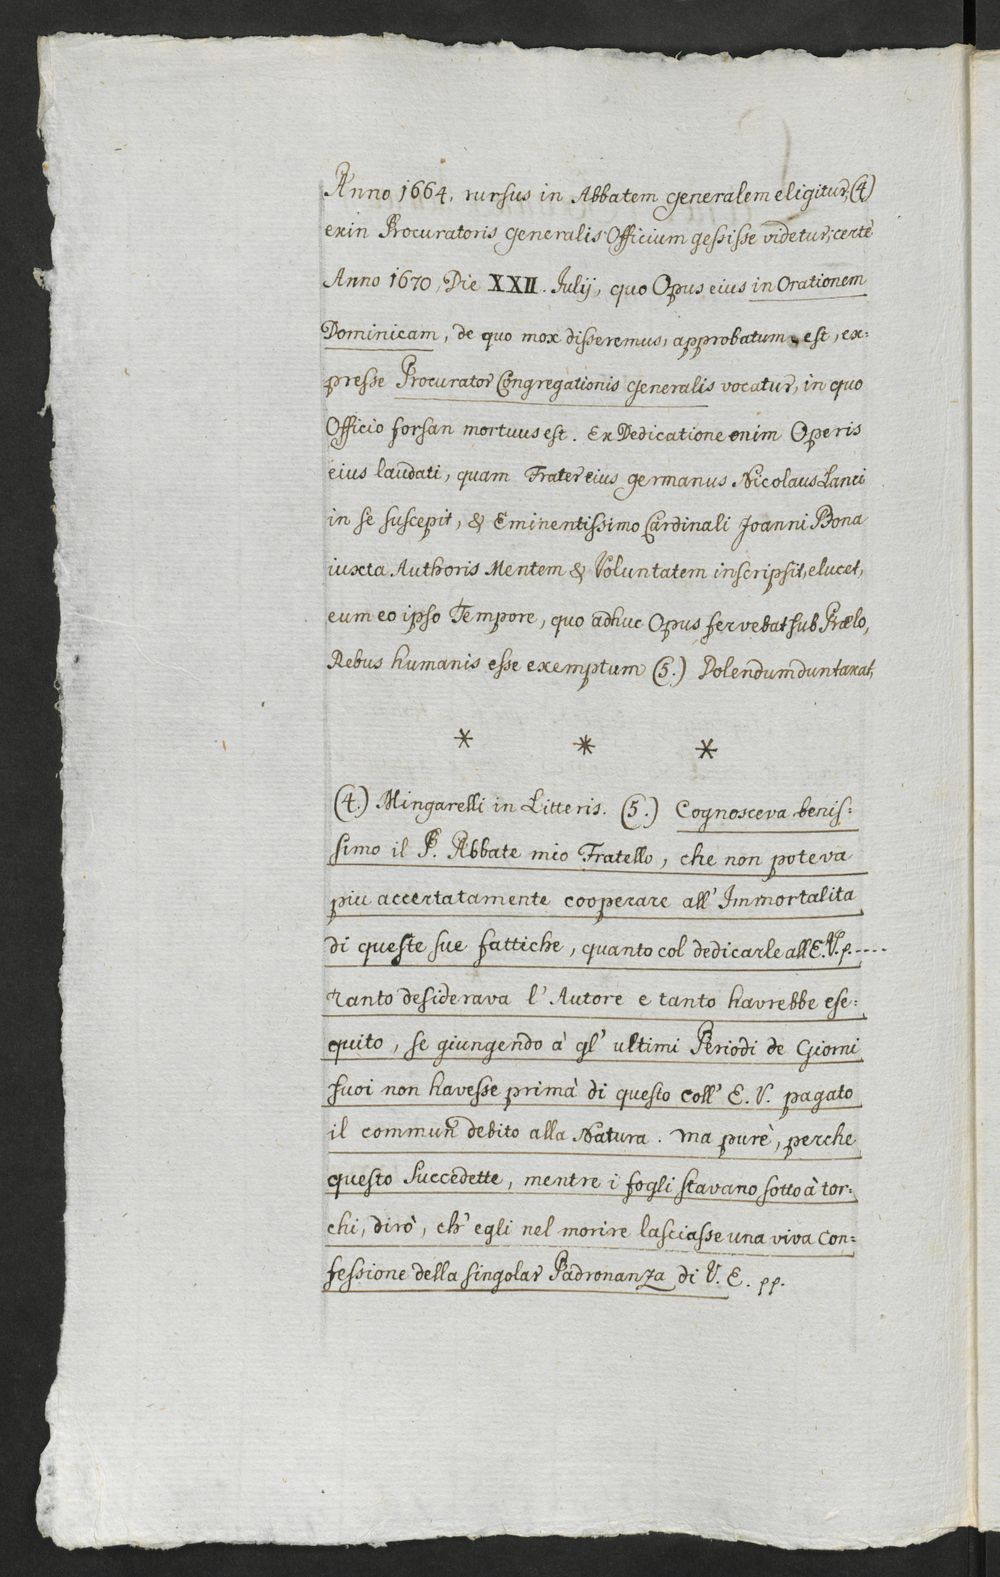 Anno 1664. rursus in Abbatem generalem eligitur, (4)
exin Procuratoris generalis Officium gessisse videtur; certè
Anno 1670, Die XXII. Julij, quo Opus eius in Orationem
Dominicam, de quo mox disseremus, approbatum est, ex=
presse Procurator Congregationis generalis vocatur, in quo
Officio forsan mortuus est. Ex Dedicatione enim Operis
eius laudati, quam Frater eius germanus Nicolaus Lanci
in se suscepit, & Eminentissimo Cardinali Joanni Bona
iuxta Authoris Mentem & Voluntatem inscripsit, elucet,
eum eo ipso Tempore, quo adhuc Opus fervebat sub Prælo,
Rebus humanis esse exemptum (5.) Dolendum duntaxat,
* * *
(4.) Mingarelli in Litteris. (5.) Cognosceva benis=
simo il P. Abbate mio Fratello, che non poteva
piu accertatamente cooperare all' Immortalita
di queste sue fattiche, quanto col dedicarle all E. V. p.----
Tanto desiderava l' Autore e tanto havrebbe ese=
quito, se giungendo à gl' ultimi Periodi de Giorni
suoi non havesse prima di questo coll' E. V. pagato
il commun debito alla Natura. Ma purè, perche
questo Succedette, mentre i fogli stavano sotto à tor=
chi, dirò, ch' egli nel morire lasciasse una viva Con=
fessione della singolar Padronanza di V. E. pp.